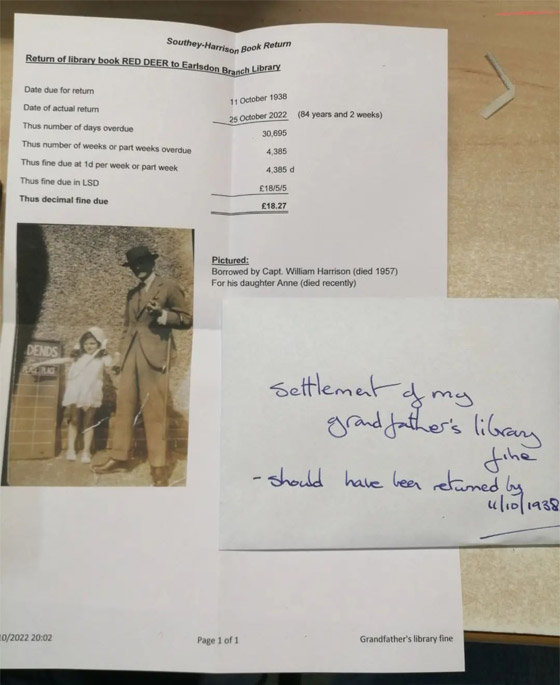 Southey-Harrison Book Return
Return of library book RED DEER to Earlsdon Branch Library
Date due for return 11 October 1938
Date of actual return 25 October 2022 (84 years and 2 weeks)
Thus number of days overdue 30,695
Thus number of weeks or part weeks overdue 4,385
Thus fine due at 1d per week or part week 4,385 d
Thus fine due in LSD £18/5/5
Thus decimal fine due £18.27
DENDS
PLACE
Pictured:
Borrowed by Capt. William Harrison (died 1957)
For his daughter Anne (died recently)
Settlement of my
grandfather's library
fine
- should have been returned by
11/10/1938
0/2022 20:02 Page 1 of 1 Grandfather's library fine